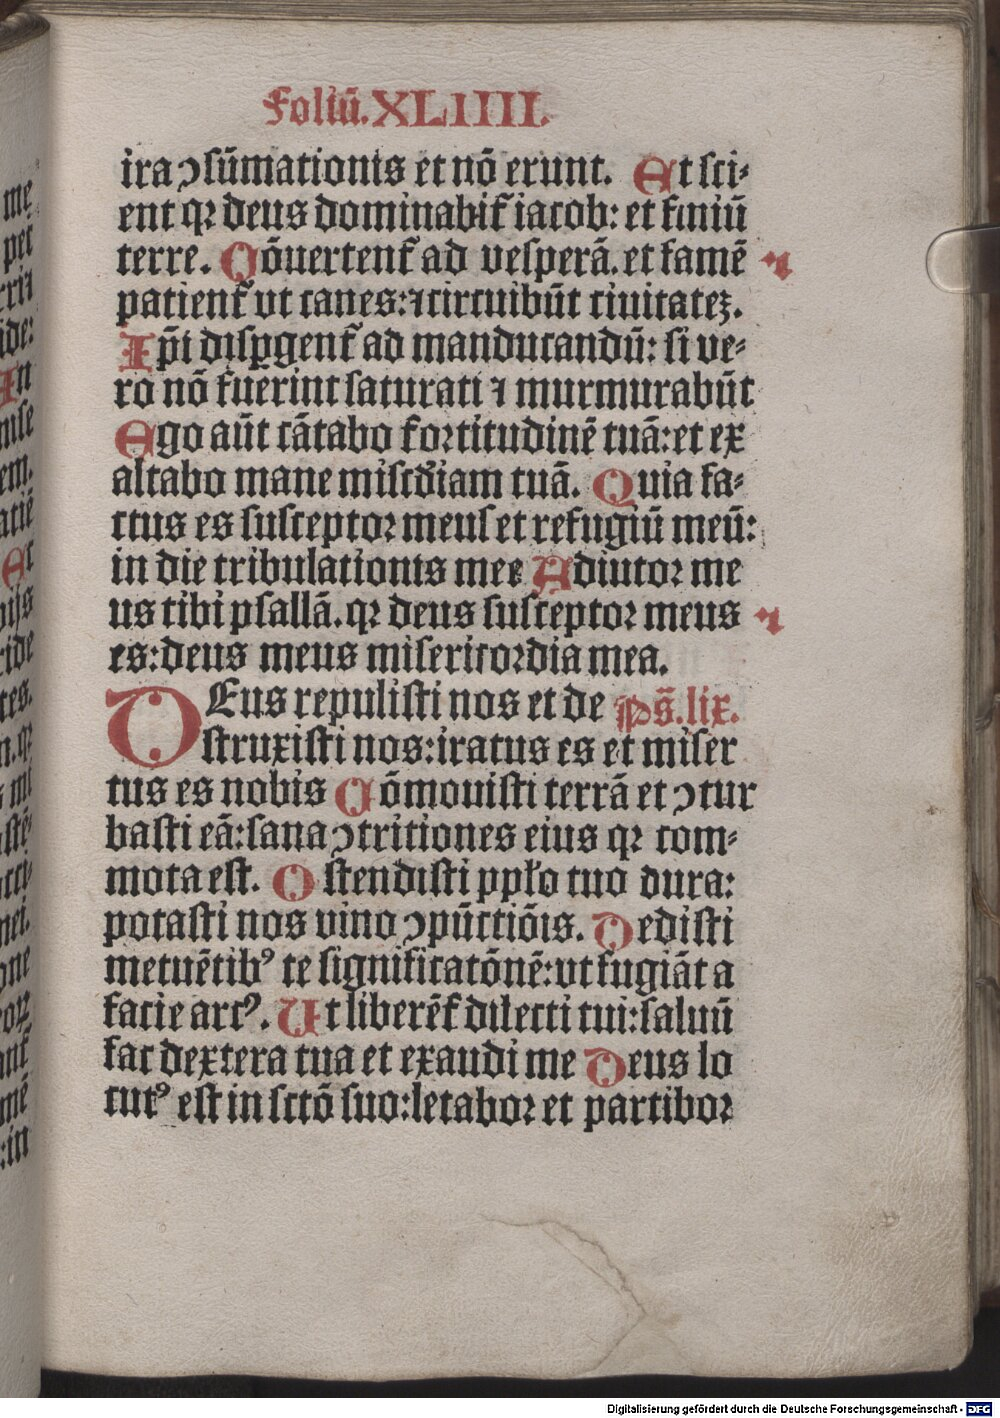 Foliū.XLIIII.
ira ꝯsūmationis et nō erunt. Et sci-
ent qꝛ deus dominabit᷑ iacob: et finiū
terre. Cōuertent᷑ ad vesperā. et famē
patient᷑ vt canes: ⁊ circuibūt ciuitateꝫ.
Ip̄i dispgent᷑ ad manducandū: si ve-
ro nō fuerint saturati ⁊ murmurabūt
Ego aūt cātabo fortitudinē tuā: et ex
altabo mane misc̄diam tuā. Quia fa-
ctus es susceptor meus et refugiū meū:
in die tribulationis mee Adiutor me
us tibi psallā. qꝛ deus susceptor meus
es: deus meus misericordia mea.
DEus repulisti nos et de Ps̄.lix.
struxisti nos: iratus es et miser
tus es nobis Cōmouisti terrā et ꝯtur
basti eā: sana ꝯtritiones eius qꝛ com-
mota est. Ostendisti pplo tuo dura:
potasti nos vino ꝯpūctiōis. Dedisti
metuētibꝰ te significatōnē: vt fugiāt a
facie arcꝰ. Ut liberēt᷑ dilecti tui: saluū
fac dextera tua et exaudi me Deus lo
cutꝰ est in sctō suo: letabor et partibor
Digitalisierung gefördert durch die Deutsche Forschungsgemeinschaft - DFG